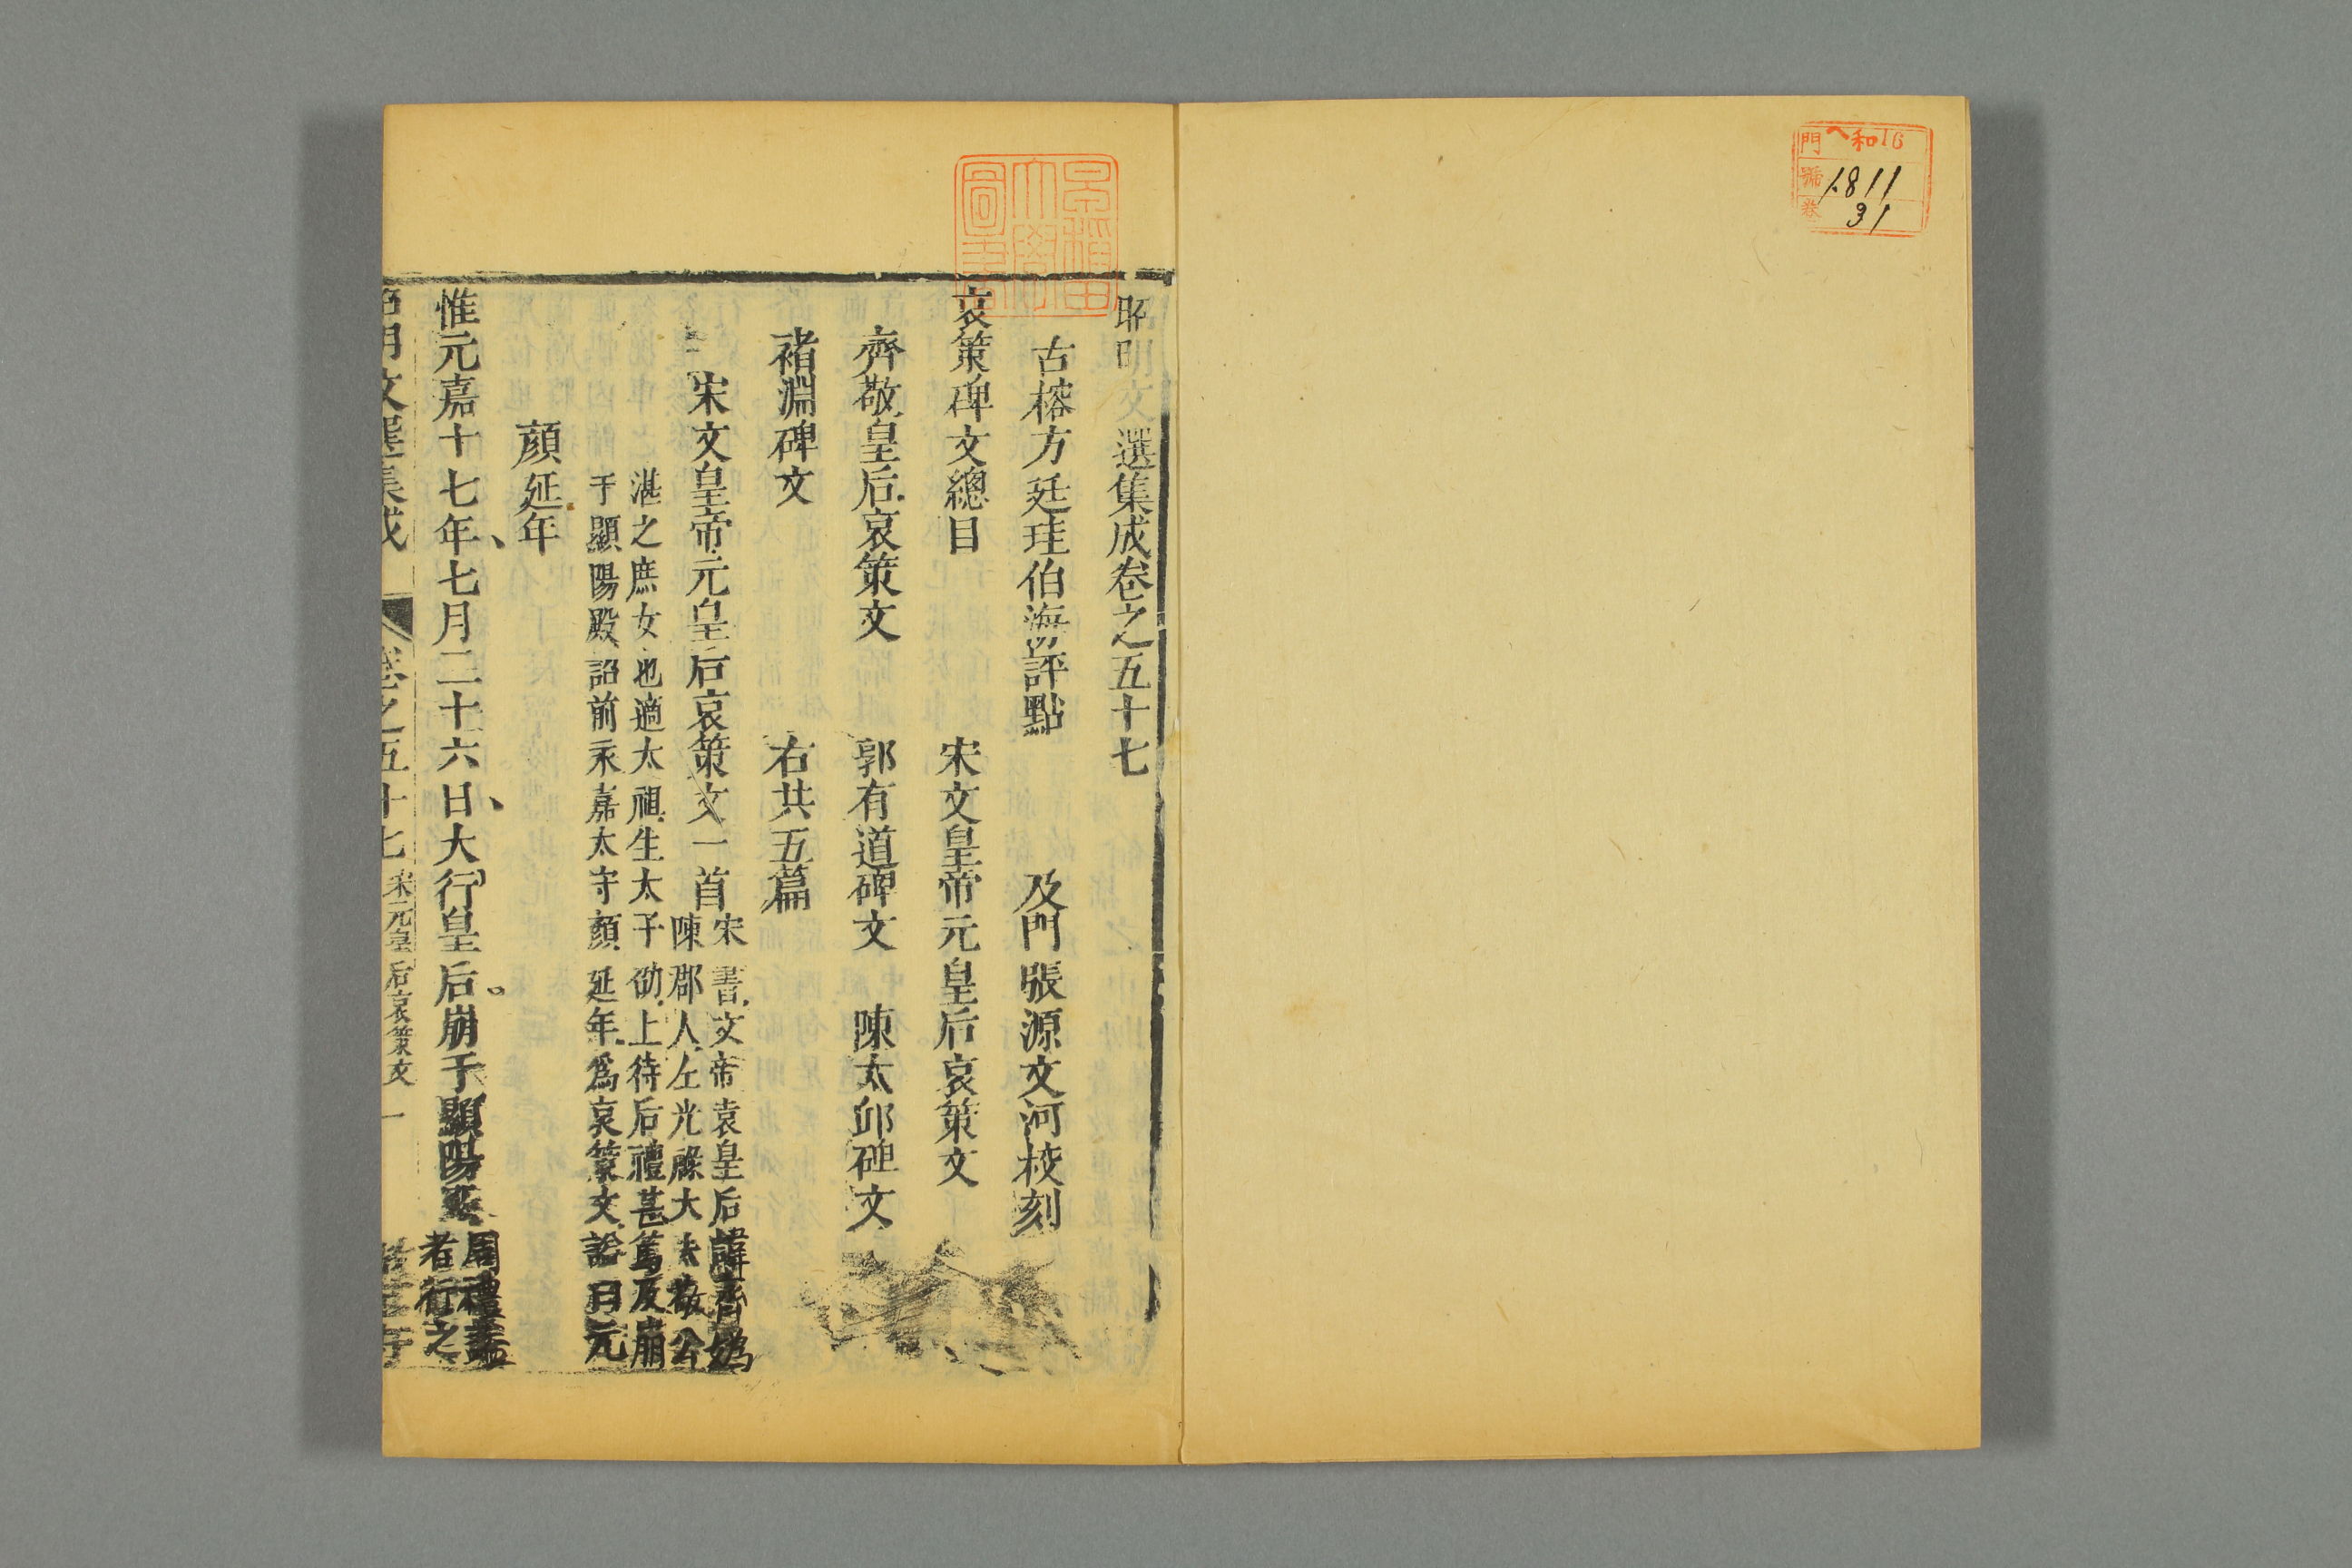 門 ヘ和16
號 1811
卷 31
昭明文選集成卷之五十七
古榕方廷珪伯海評點 及門張源文河校刻
哀策碑文總目 宋文皇帝元皇后哀策文
齊敬皇后哀策文 郭有道碑文 陳太邱碑文
褚淵碑文 右共五篇
宋文皇帝元皇后哀策文一首
宋書文帝袁皇后諱齊嬀
陳郡人左光祿大夫敬公
湛之庶女也適太祖生太子劭上待后禮甚篤及崩
于顯陽殿詔前永嘉太守顏延年爲哀策文諡曰元
顏延年
惟元嘉十七年七月二十六日大行皇后崩于顯陽
周禮
者行之
昭明文選集成 卷之五十七 宋元皇后哀策文 一